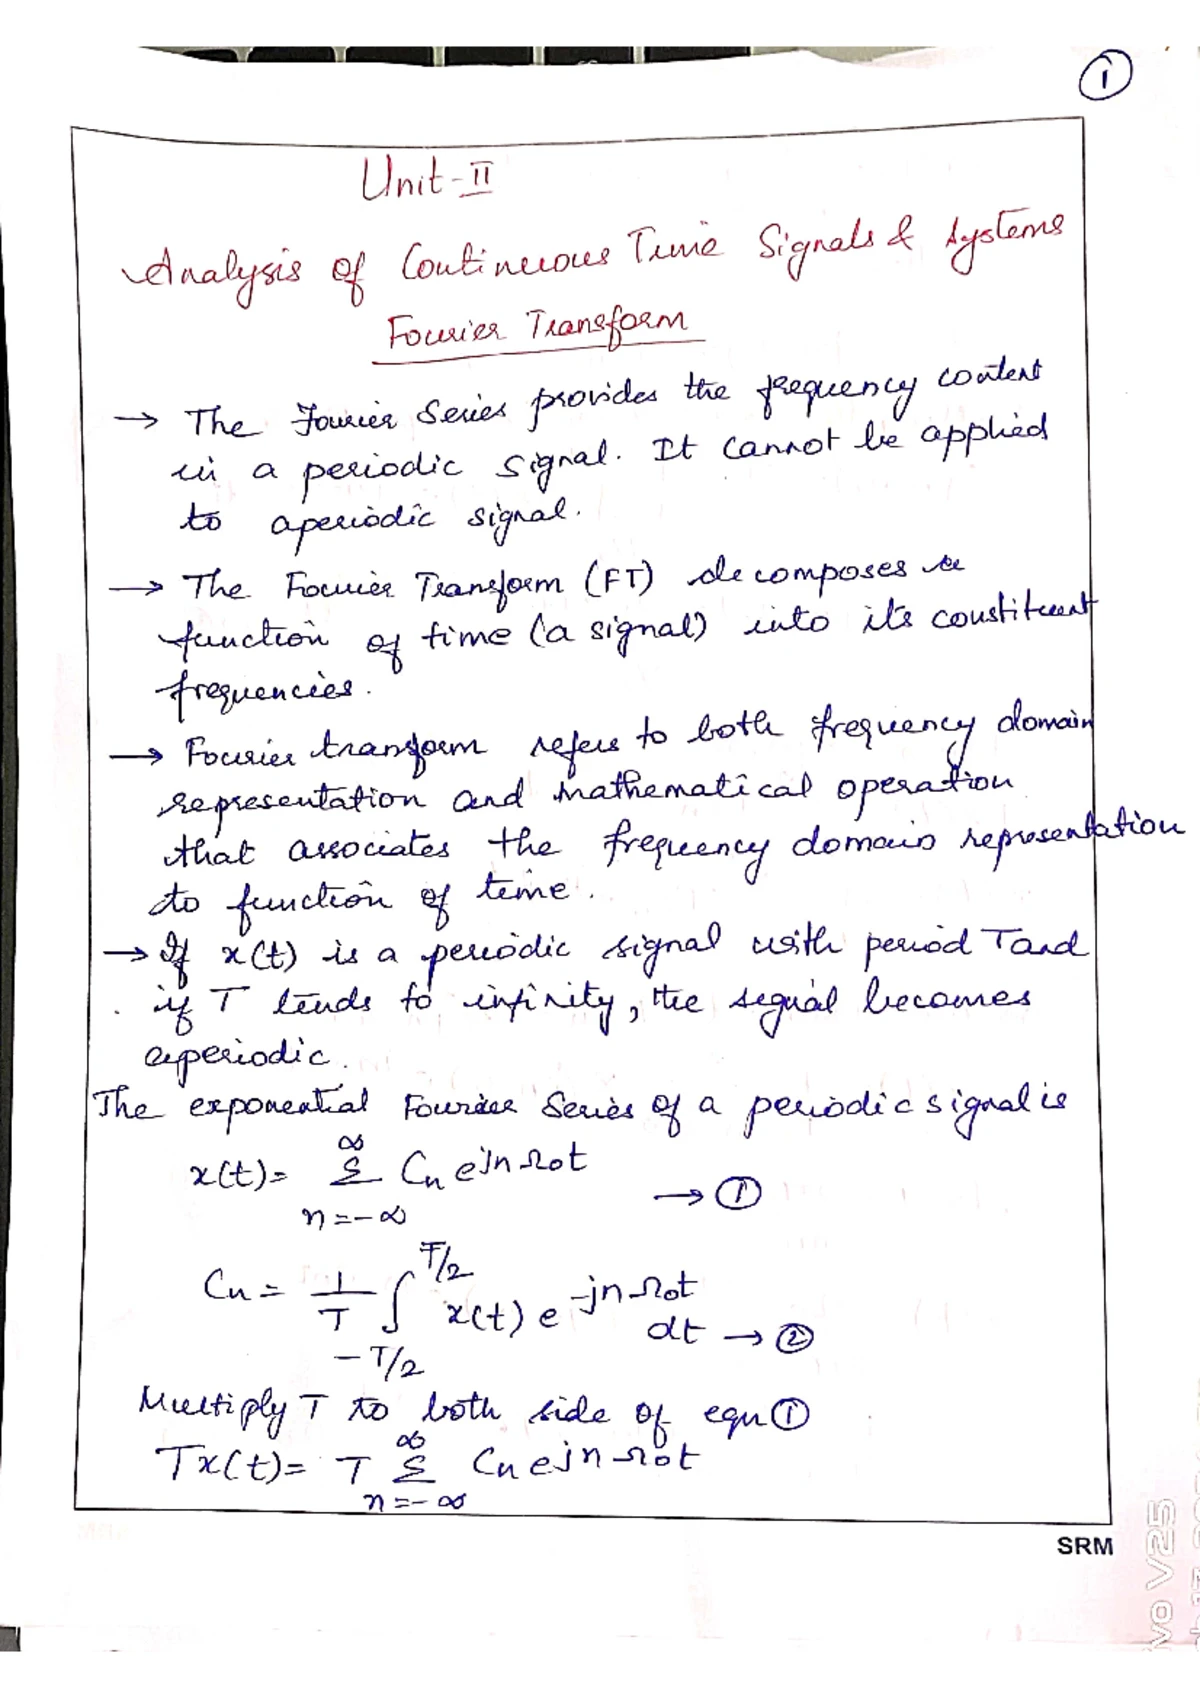 1
Unit-II
Analysis of Continuous Time Signals & Systems
Fourier Transform
→ The Fourier Series provides the frequency content
in a periodic signal. It cannot be applied
to aperiodic signal.
→ The Fourier Transform (FT) decomposes a
function of time (a signal) into its constituent
frequencies.
→ Fourier transform refers to both frequency domain
representation and mathematical operation
that associates the frequency domain representation
to function of time.
→ If x(t) is a periodic signal with period T and
if T tends to infinity, the signal becomes
aperiodic.
The exponential Fourier Series of a periodic signal is
x(t) = ∞ Σ n=-∞ Cn e^jnΩ0t → ①
Cn = 1/T ∫ -T/2 T/2 x(t) e^-jnΩ0t dt → ②
Multiply T to both side of equ ①
Tx(t) = T ∞ Σ n=-∞ Cn e^jnΩ0t
SRM
vo V25